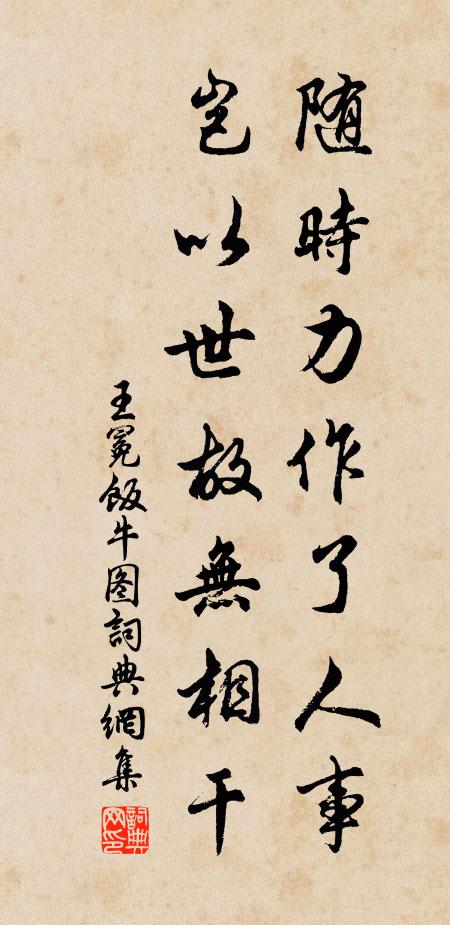 随時力作了人事
豈以世故無相干
王冕飯牛图詞典網集
詞典网印